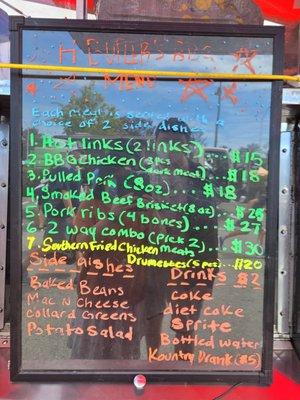 BBQ
MENU
Each meal is served with a
choice of 2 side dishes
1. Hot links (2 links) .... $15
2. BBQ Chicken (3pcs dark meat) ... $18
3. Pulled Pork (8oz) ... $18
4. Smoked Beef Brisket (8oz) ... $26
5. Pork ribs (4 bones) ... $27
6. 2 way combo (Pick 2) ... $30
7. Southern Fried Chicken meats
Drumettes (5 pcs) ... $20
Side dishes
Baked Beans
Mac N Cheese
Collard Greens
Potato Salad
Drinks $2
coke
diet coke
Sprite
Bottled water
Kountry Drank ($5)